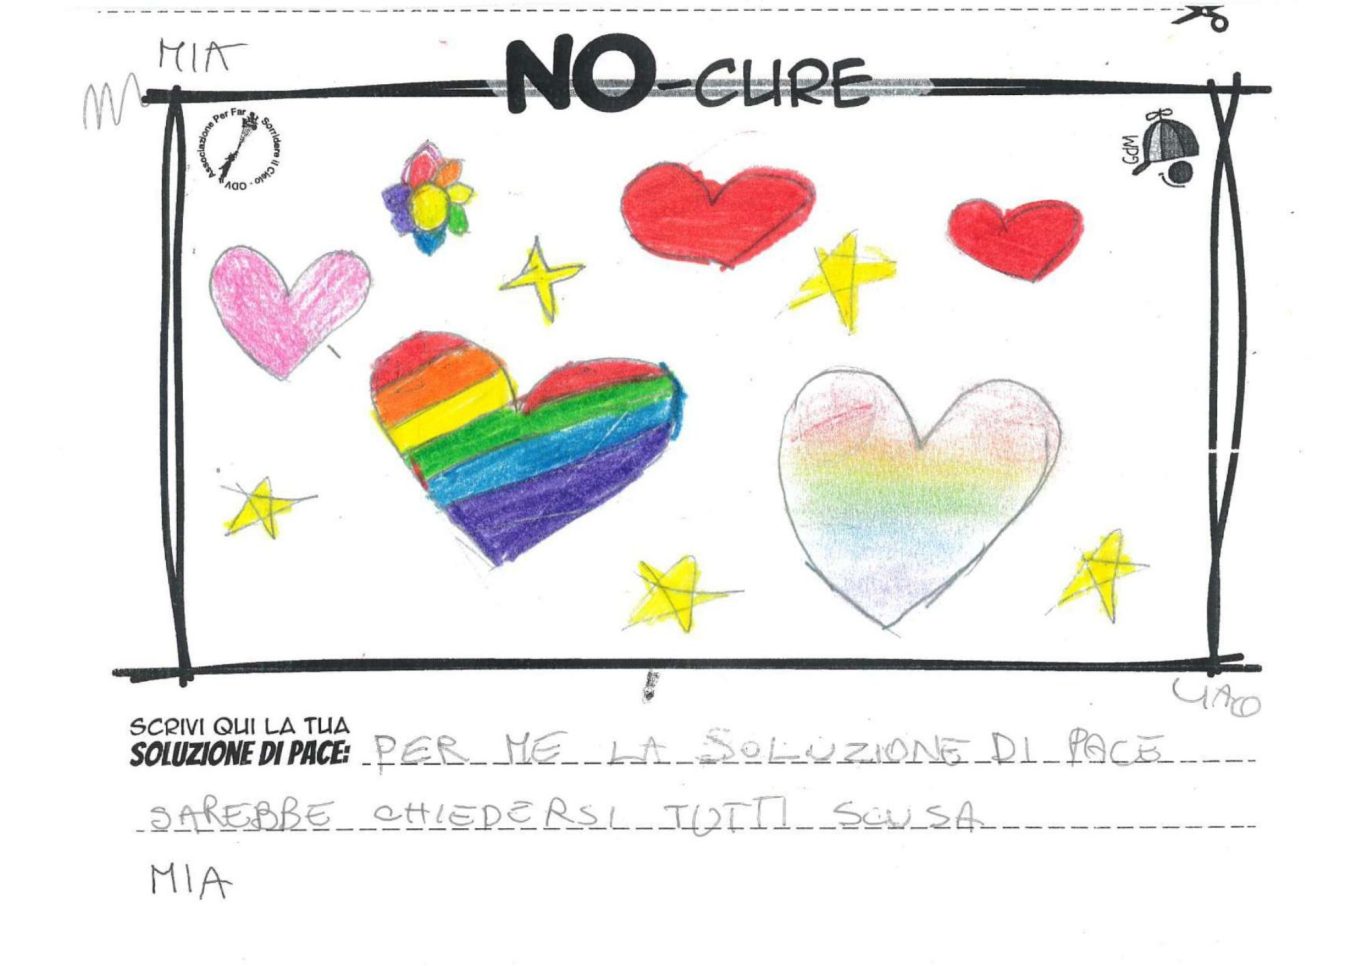 MIA
NO-CURE
Associazione Per Far Sorridere il Cielo - ODV
GdM
CIAO
SCRIVI QUI LA TUA
SOLUZIONE DI PACE: PER ME LA SOLUZIONE DI PACE
SAREBBE CHIEDERSI TUTTI SCUSA
MIA